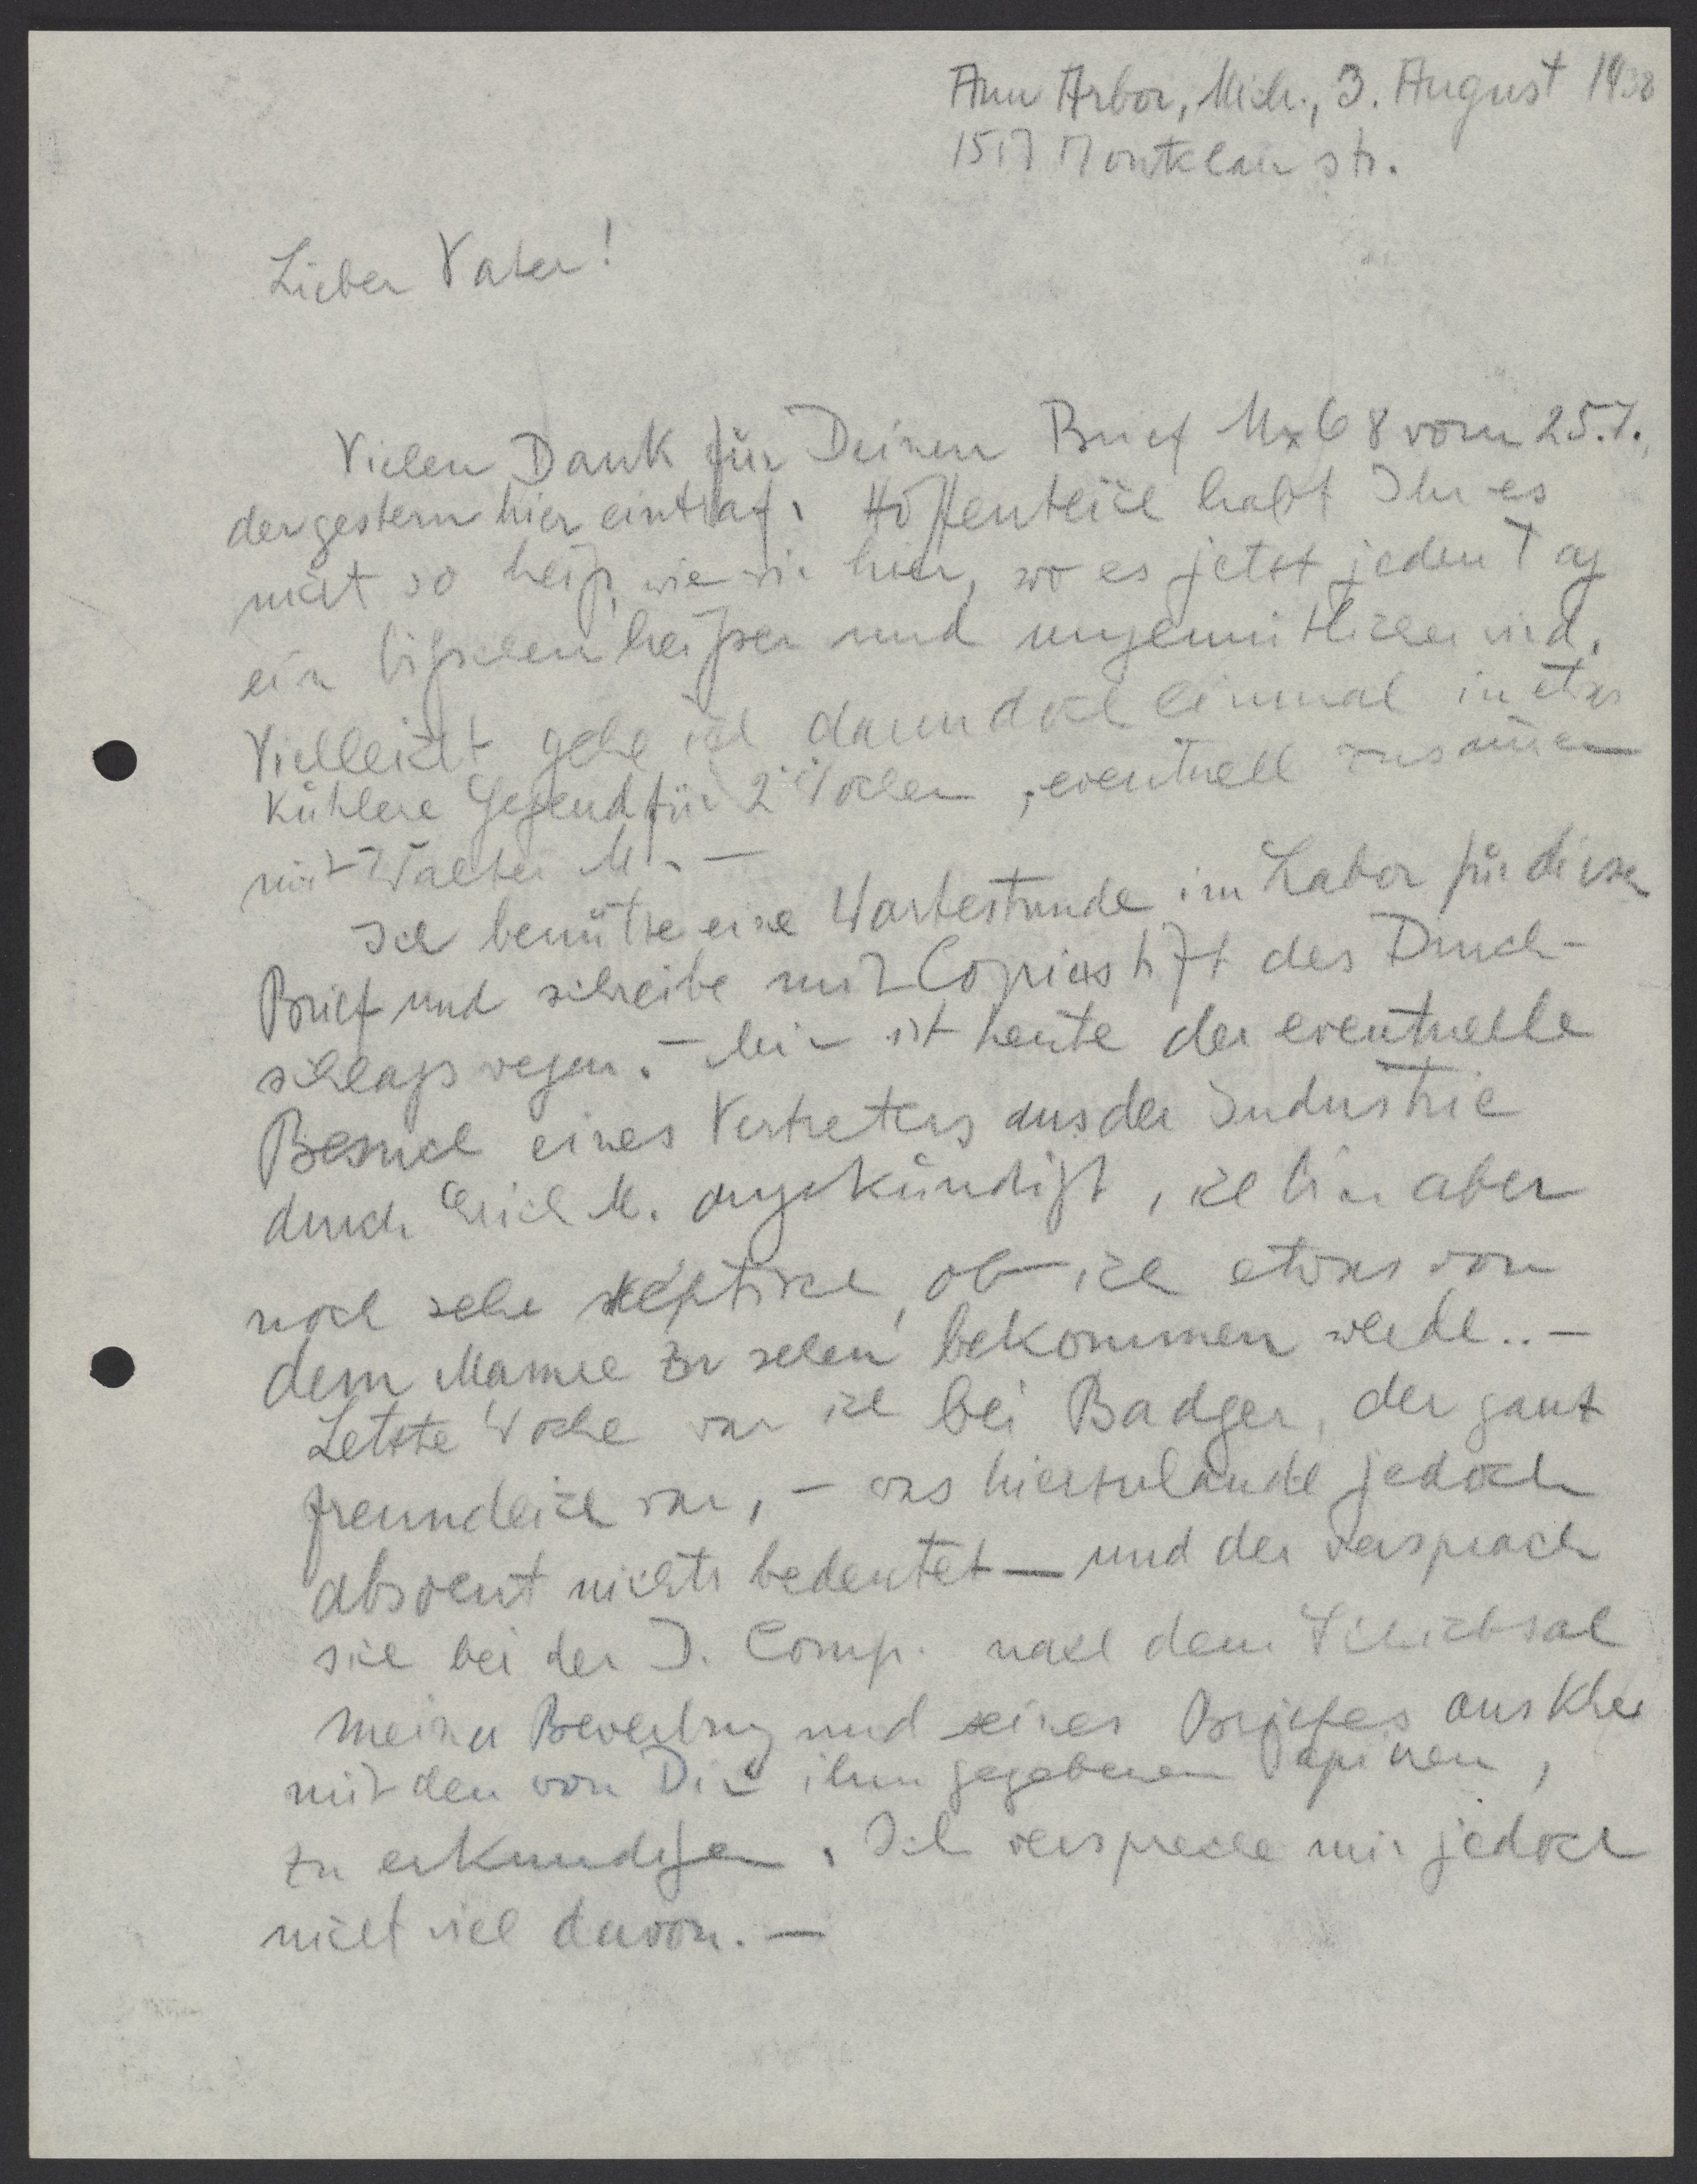 Ann Arbor, Mich., 3. August 1938
1517 Montclair str.
Lieber Vater!
Vielen Dank für Deinen Brief Mx68 vom 25.7.,
der gestern hier eintraf. Hoffentlich habt Ihr es
nicht so heiß, wie wir hier, wo es jetzt jeden Tag
ein bißchen heißer und ungemütlicher wird.
Vielleicht gehe ich dann doch einmal in etwas
kühlere Gegend für 2 Wochen, eventuell zusammen
mit Walter M. —
Ich benütze eine Wartestunde im Labor für diesen
Brief und schreibe mit Copierstift des Durch-
schlags wegen. — Mir ist heute der eventuelle
Besuch eines Vertreters aus der Industrie
durch Erich M. angekündigt, ich bin aber
noch sehr skeptisch, ob ich etwas von
dem Manne zu sehen bekommen werde.. —
Letzte Woche war ich bei Badger, der ganz
freundlich war, — was hierzulande jedoch
absolut nichts bedeutet — und der versprach
sich bei der J. Comp. nach dem Schicksal
meiner Bewerbung und seines Briefes
mit den von Dir ihm gegebenen Papieren,
zu erkundigen. Ich verspreche mir jedoch
nicht viel davon. —